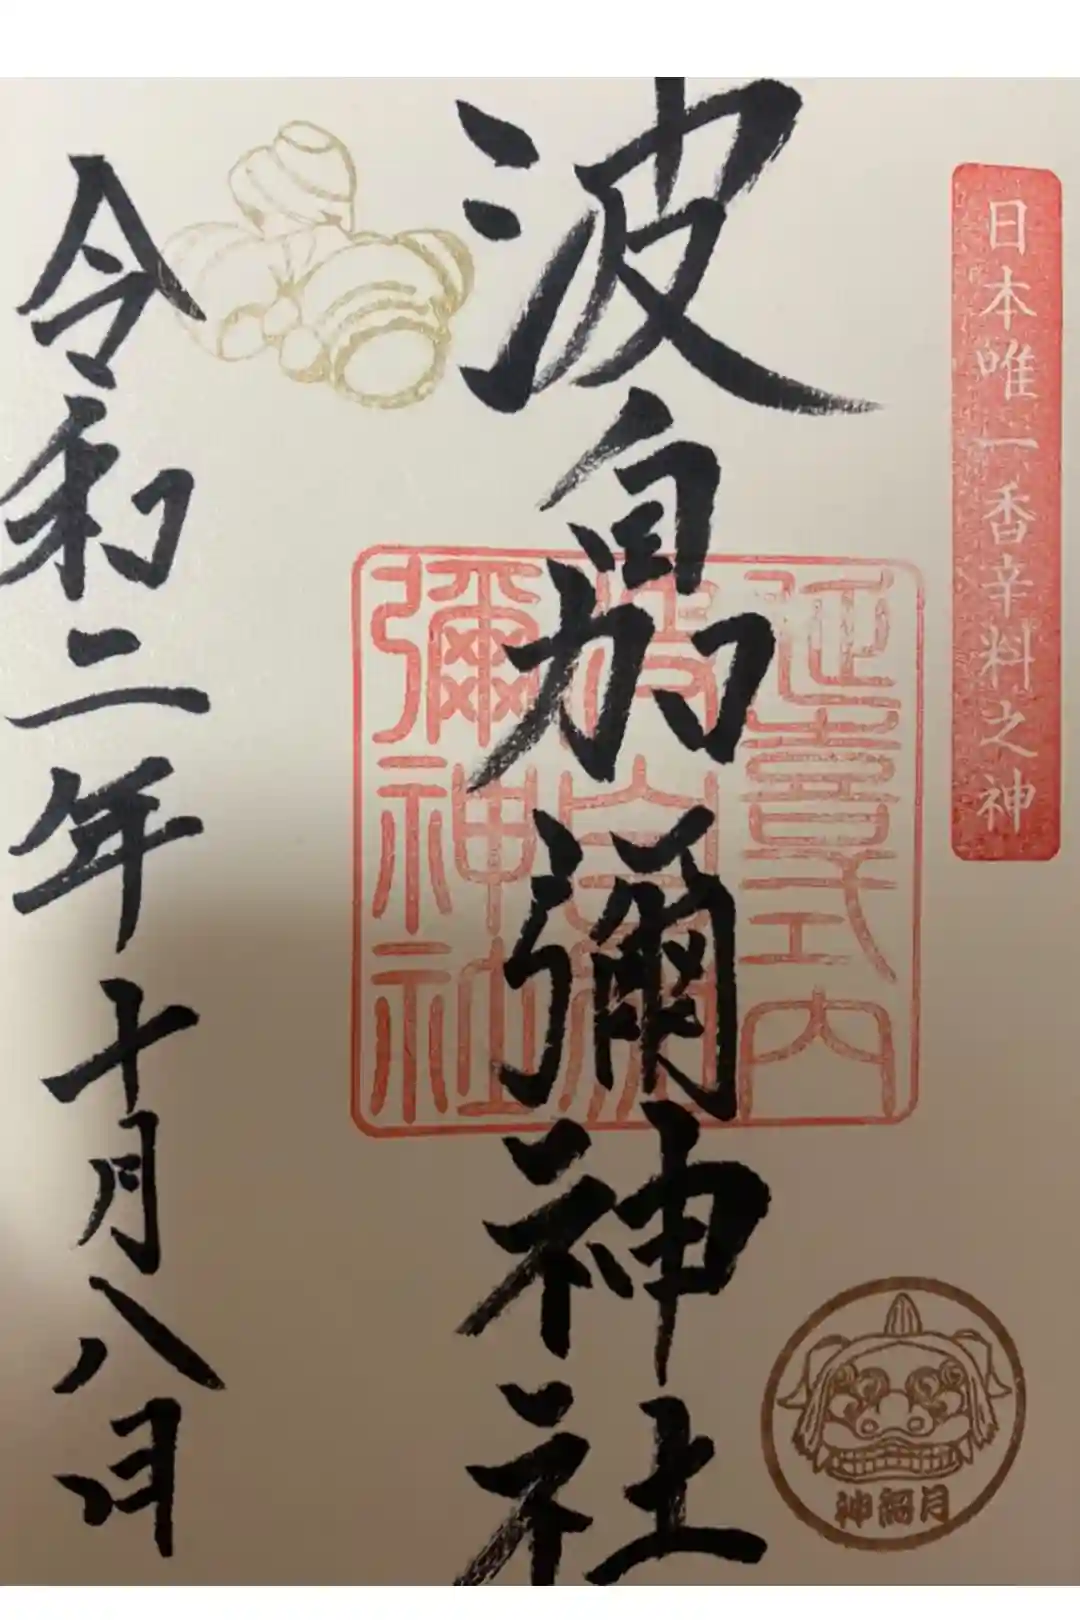 日本唯一香辛料之神
波自加彌神社
延喜式内
波自加
彌神社
令和二年十月八日